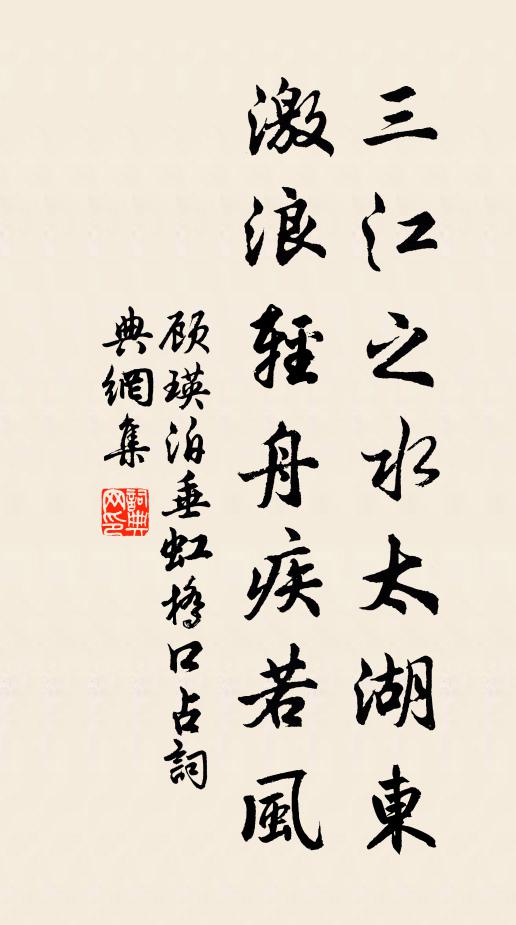 三江之水太湖東
激浪輕舟疾若風
顾瑛泊垂虹橋口占詞
典網集
詞典網印